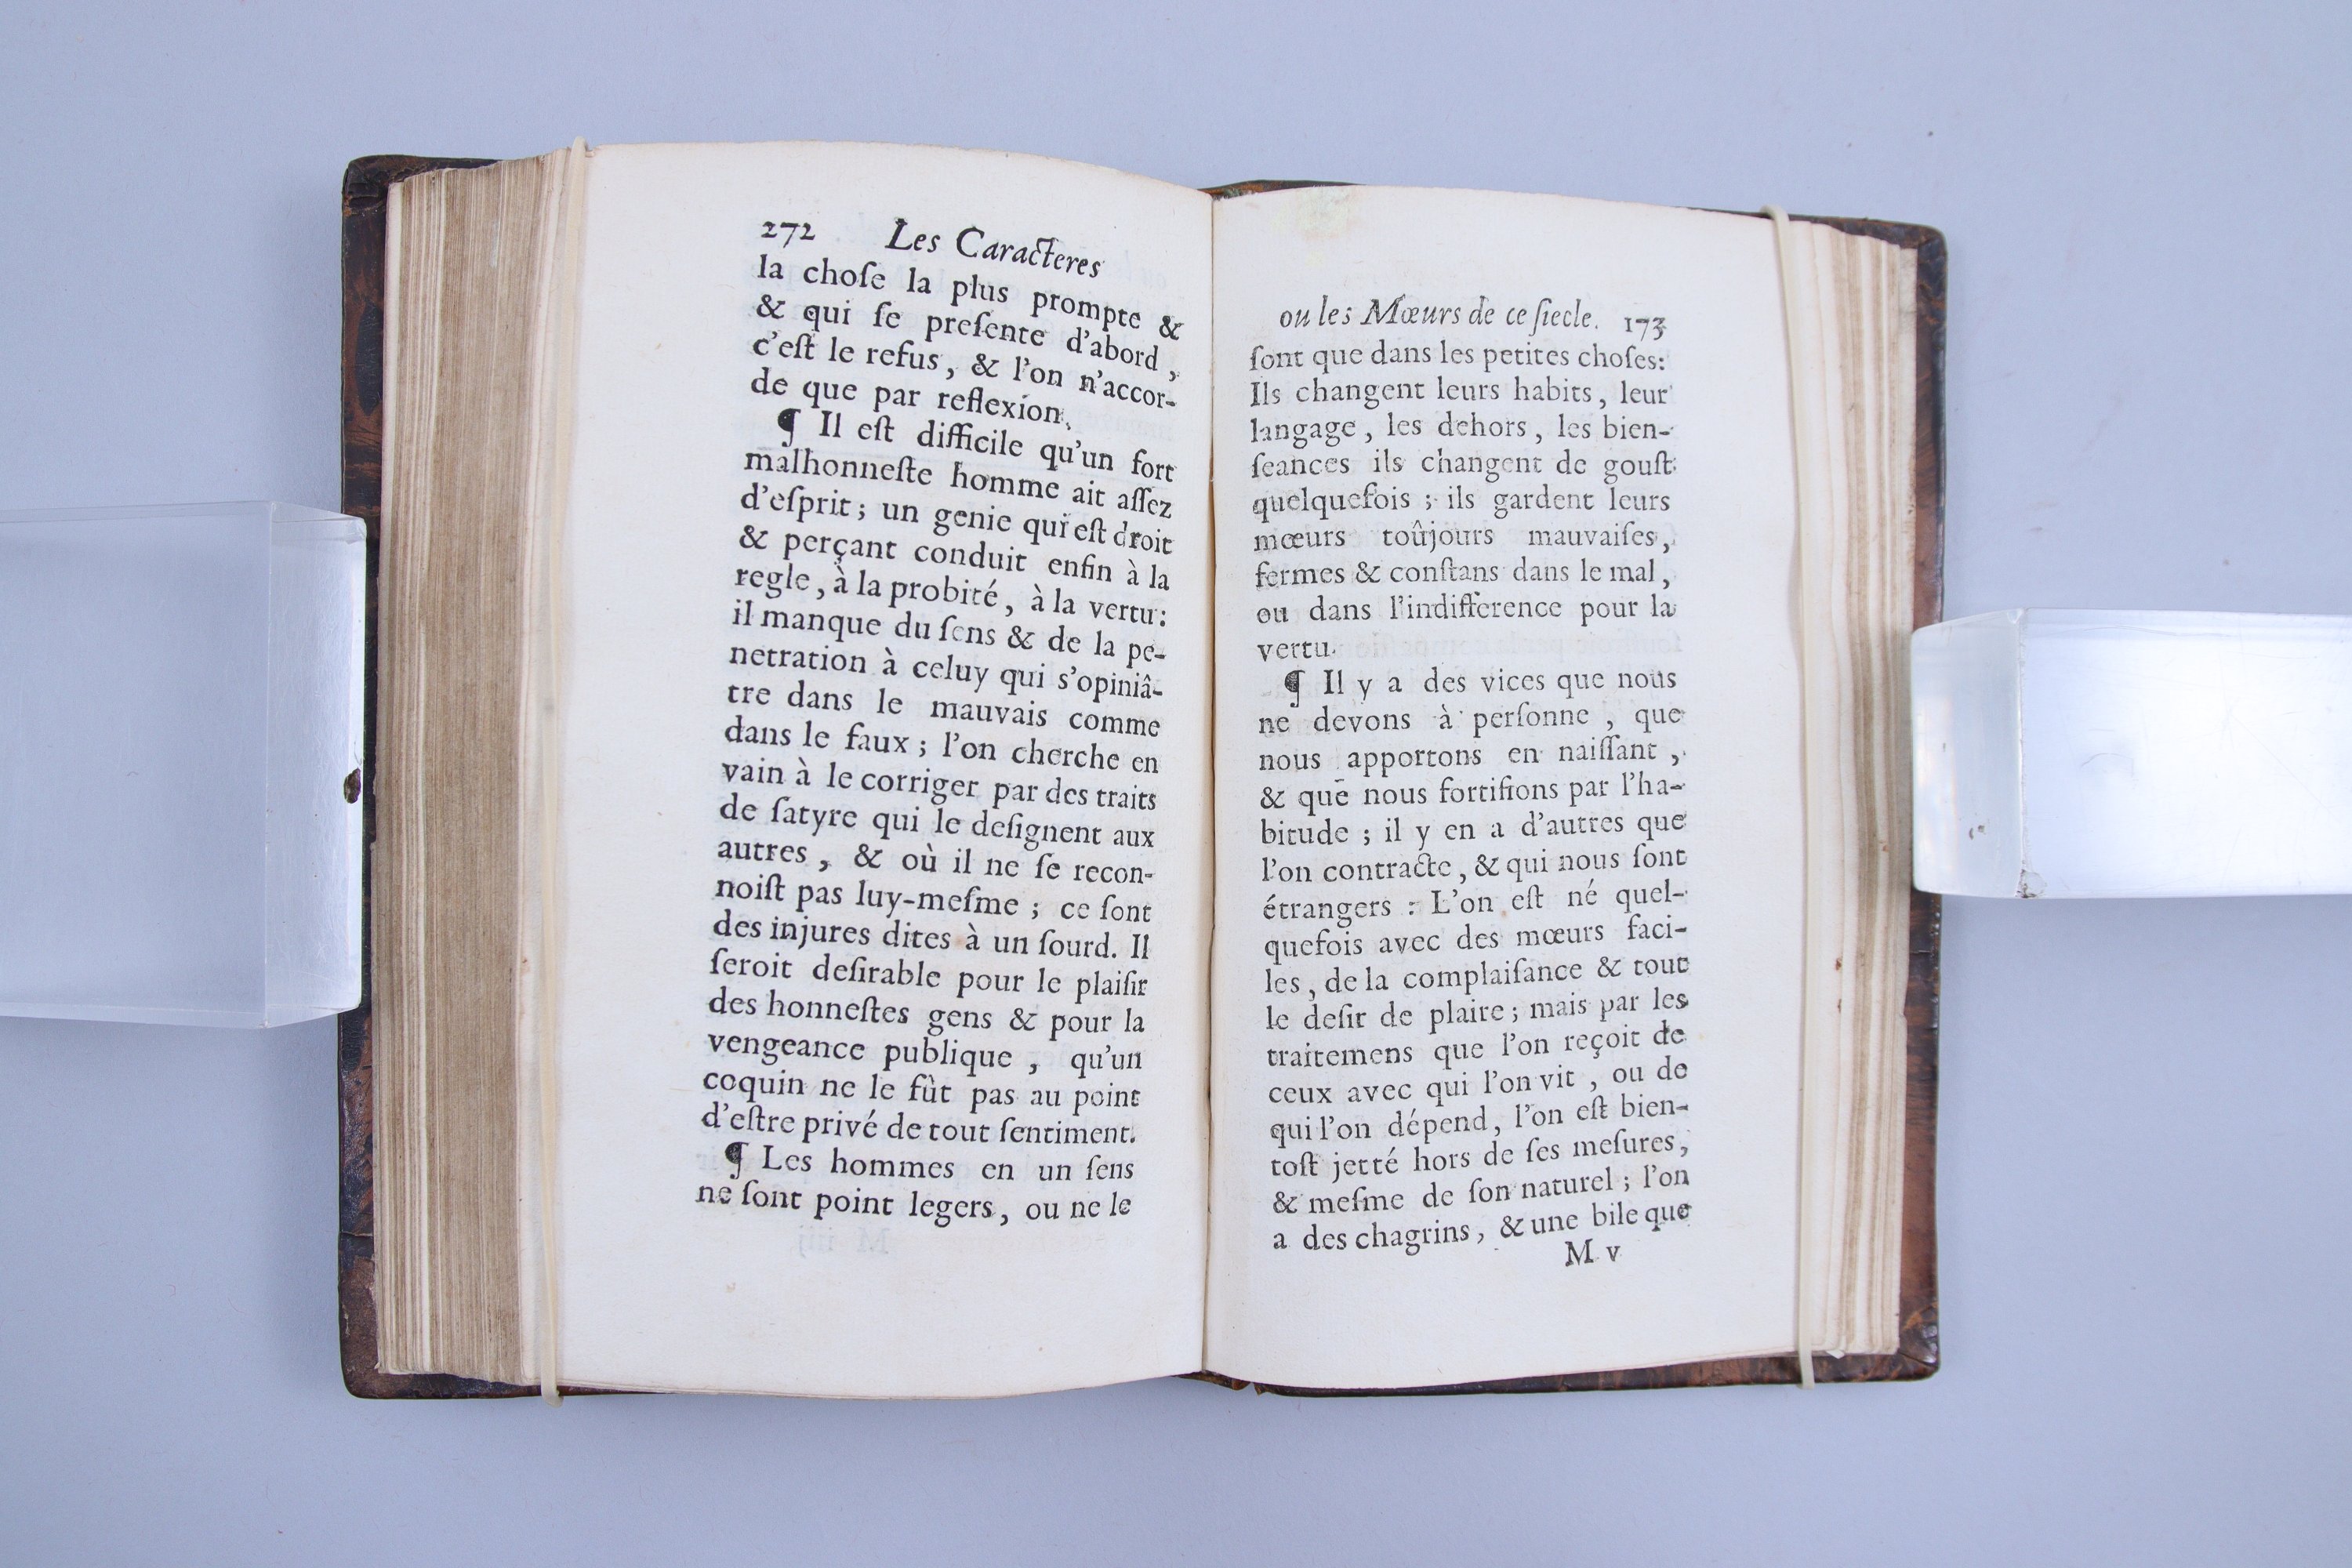 272 Les Caracteres
la choſe la plus prompte &
& qui ſe preſente d'abord,
c'eſt le refus, & l'on n'accor-
de que par reflexion.
¶ Il eſt difficile qu'un fort
malhonneſte homme ait aſſez
d'eſprit; un genie qui eſt droit
& perçant conduit enfin à la
regle, à la probité, à la vertu:
il manque du ſens & de la pe-
netration à celuy qui s'opiniâ-
tre dans le mauvais comme
dans le faux; l'on cherche en
vain à le corriger par des traits
de ſatyre qui le deſignent aux
autres, & où il ne ſe recon-
noiſt pas luy-meſme; ce ſont
des injures dites à un ſourd. Il
ſeroit deſirable pour le plaiſir
des honneſtes gens & pour la
vengeance publique, qu'un
coquin ne le fût pas au point
d'eſtre privé de tout ſentiment.
¶ Les hommes en un ſens
ne ſont point legers, ou ne le
ou les Mœurs de ce ſiecle. 173
ſont que dans les petites choſes:
Ils changent leurs habits, leur
langage, les dehors, les bien-
ſeances ils changent de gouſt
quelquefois; ils gardent leurs
mœurs toûjours mauvaiſes,
fermes & conſtans dans le mal,
ou dans l'indifference pour la
vertu.
¶ Il y a des vices que nous
ne devons à perſonne, que
nous apportons en naiſſant,
& que nous fortifions par l'ha-
bitude; il y en a d'autres que
l'on contracte, & qui nous ſont
étrangers: L'on eſt né quel-
quefois avec des mœurs faci-
les, de la complaiſance & tout
le deſir de plaire; mais par les
traitemens que l'on reçoit de
ceux avec qui l'on vit, ou de
qui l'on dépend, l'on eſt bien-
toſt jetté hors de ſes meſures,
& meſme de ſon naturel; l'on
a des chagrins, & une bile que
M v